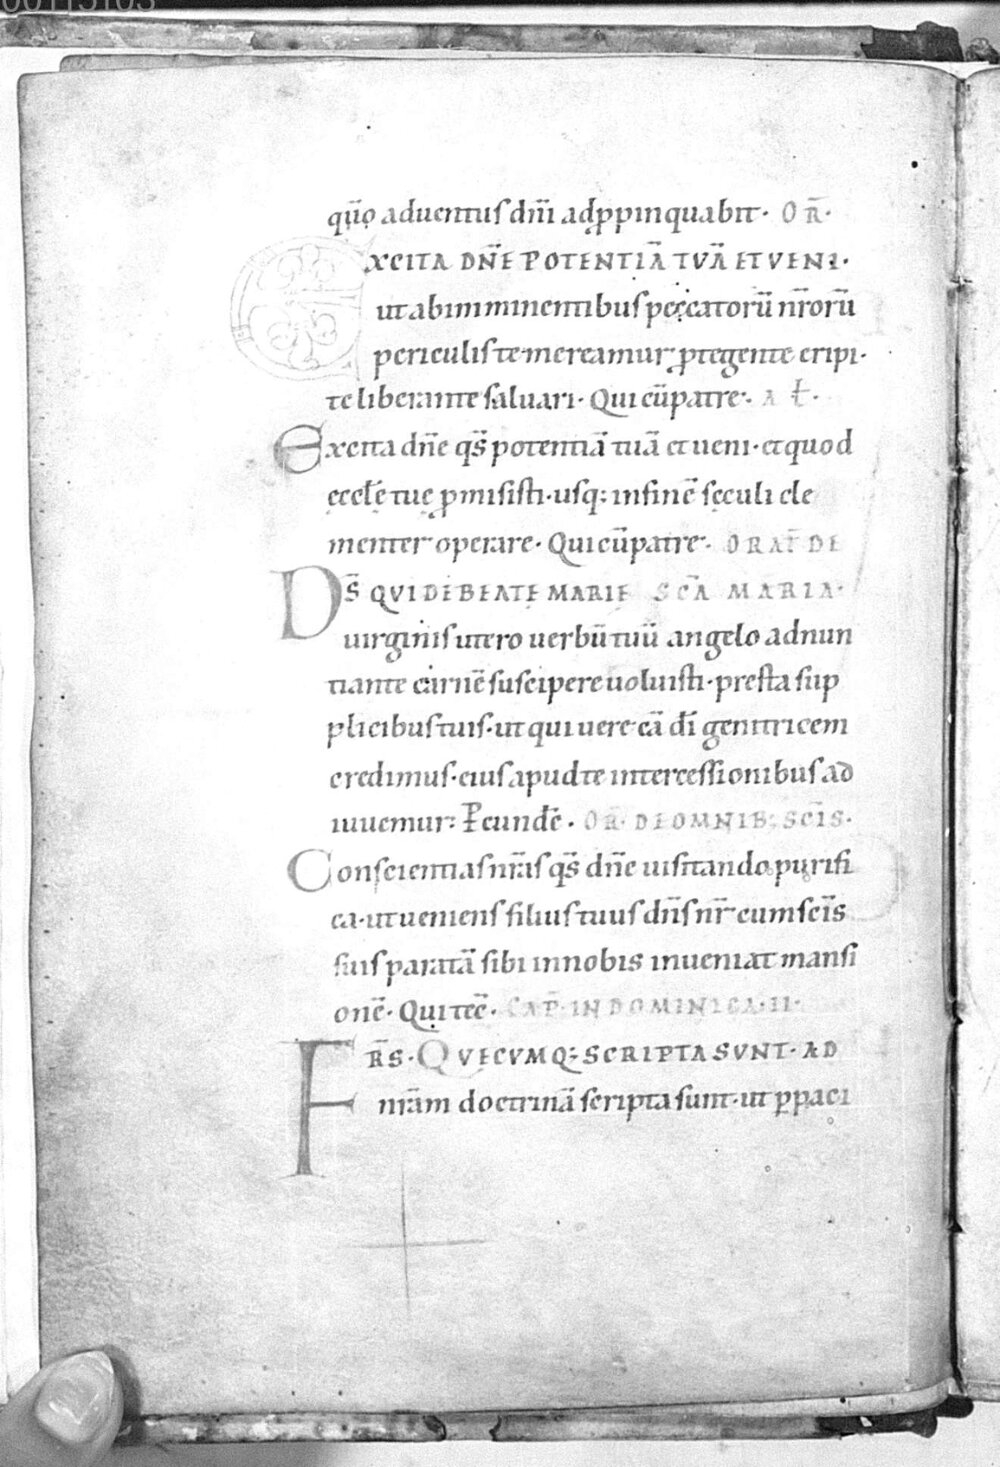 00115103
qm̄o aduentus dnī adꝓpinquabit. OR̄.
EXCITA DN̄E POTENTIĀ TVĀ ET VENI.
ut ab imminentibus peccatorū nr̄orū
periculis te mereamur ꝓtegente eripi.
te liberante saluari. Qui cū patre. AL̄.
Excita dn̄e qs̄ potentiā tuā et ueni. et quod
eccłē tuę ꝓmisisti. usq; in finē sęculi cle
menter operare. Qui cū patre. ORAT̄ DE
DS̄ QVI DE BEATE MARIE SCĀ MARIA.
uirginis utero uerbū tuū angelo adnun
tiante carnē suscipere uoluisti. presta sup
plicibus tuis. ut qui uere eā dī genitricem
credimus. eius apud te intercessionibus ad
iuuemur: P̄ eundē. OR̄. DE OMNIB; SCĪS.
Conscientias nr̄as qs̄ dn̄e uisitando purifi
ca. ut ueniens filius tuus dn̄s nr̄ cum scīs
suis paratā sibi in nobis inueniat mansi
onē. Qui tec̄. CAP̄. IN DOMINICA. II.
FR̄S. QVECVMQ; SCRIPTA SVNT. AD
nr̄am doctrinā scripta sunt. ut ꝑ paci